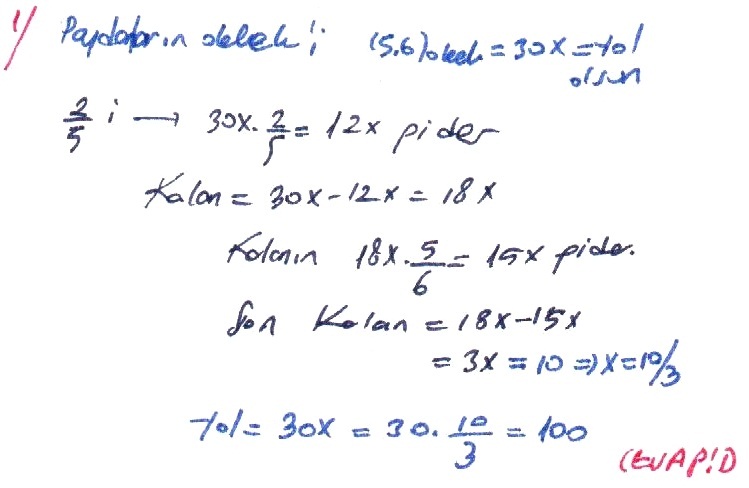 1) Paydaların okek'i; (5,6)okek = 30x = yol olsun
2/5 i → 30x · 2/5 = 12x gider
Kalan = 30x - 12x = 18x
Kalanın 18x · 5/6 = 15x gider.
Son Kalan = 18x - 15x
= 3x = 10 ⇒ x = 10/3
Yol = 30x = 30 · 10/3 = 100
CEVAP: D